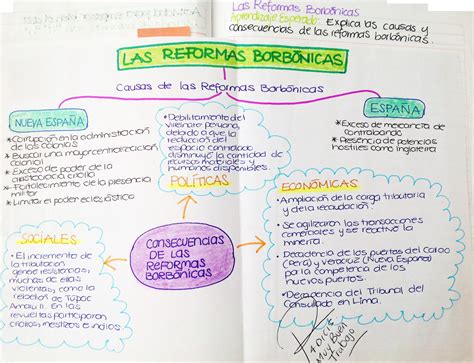 Las Reformas Borbónicas
Aprendizaje Esperado: Explica las causas y
consecuencias de las reformas borbónicas.
LAS REFORMAS BORBÓNICAS
Causas de las Reformas Borbónicas
NUEVA ESPAÑA
* Corrupción en la administración
de las colonias
* Buscar una mayor centralización
colonial
* Exceso de poder de la
aristocracia criolla
* Fortalecimiento de la presencia
militar
* Limitar el poder eclesiástico
ESPAÑA
* Exceso de mercancía de
contrabando
* Presencia de potencias
hostiles como Inglaterra
• Debilitamiento del
virreinato peruano,
debido a que la
reducción del
espacio controlado
disminuyó la cantidad de
recursos materiales y
humanos disponibles.
POLÍTICAS
ECONÓMICAS
• Ampliación de la carga tributaria
y de la recaudación.
• Se agilizaron las transacciones
comerciales y se reactivó la
minería.
• Decadencia de los puertos del Callao
(Perú) y Veracruz (Nueva España)
por la competencia de los
nuevos puertos.
• Decadencia del Tribunal del
Consulado en Lima.
SOCIALES
• El incremento de
la tributación
generó resistencias,
muchas de ellas
violentas, como la
rebelión de Túpac
Amaru II. En las
revueltas participaron
criollos, mestizos e indios
CONSECUENCIAS
DE LAS
REFORMAS
BORBÓNICAS
Muy Buen
Trabajo